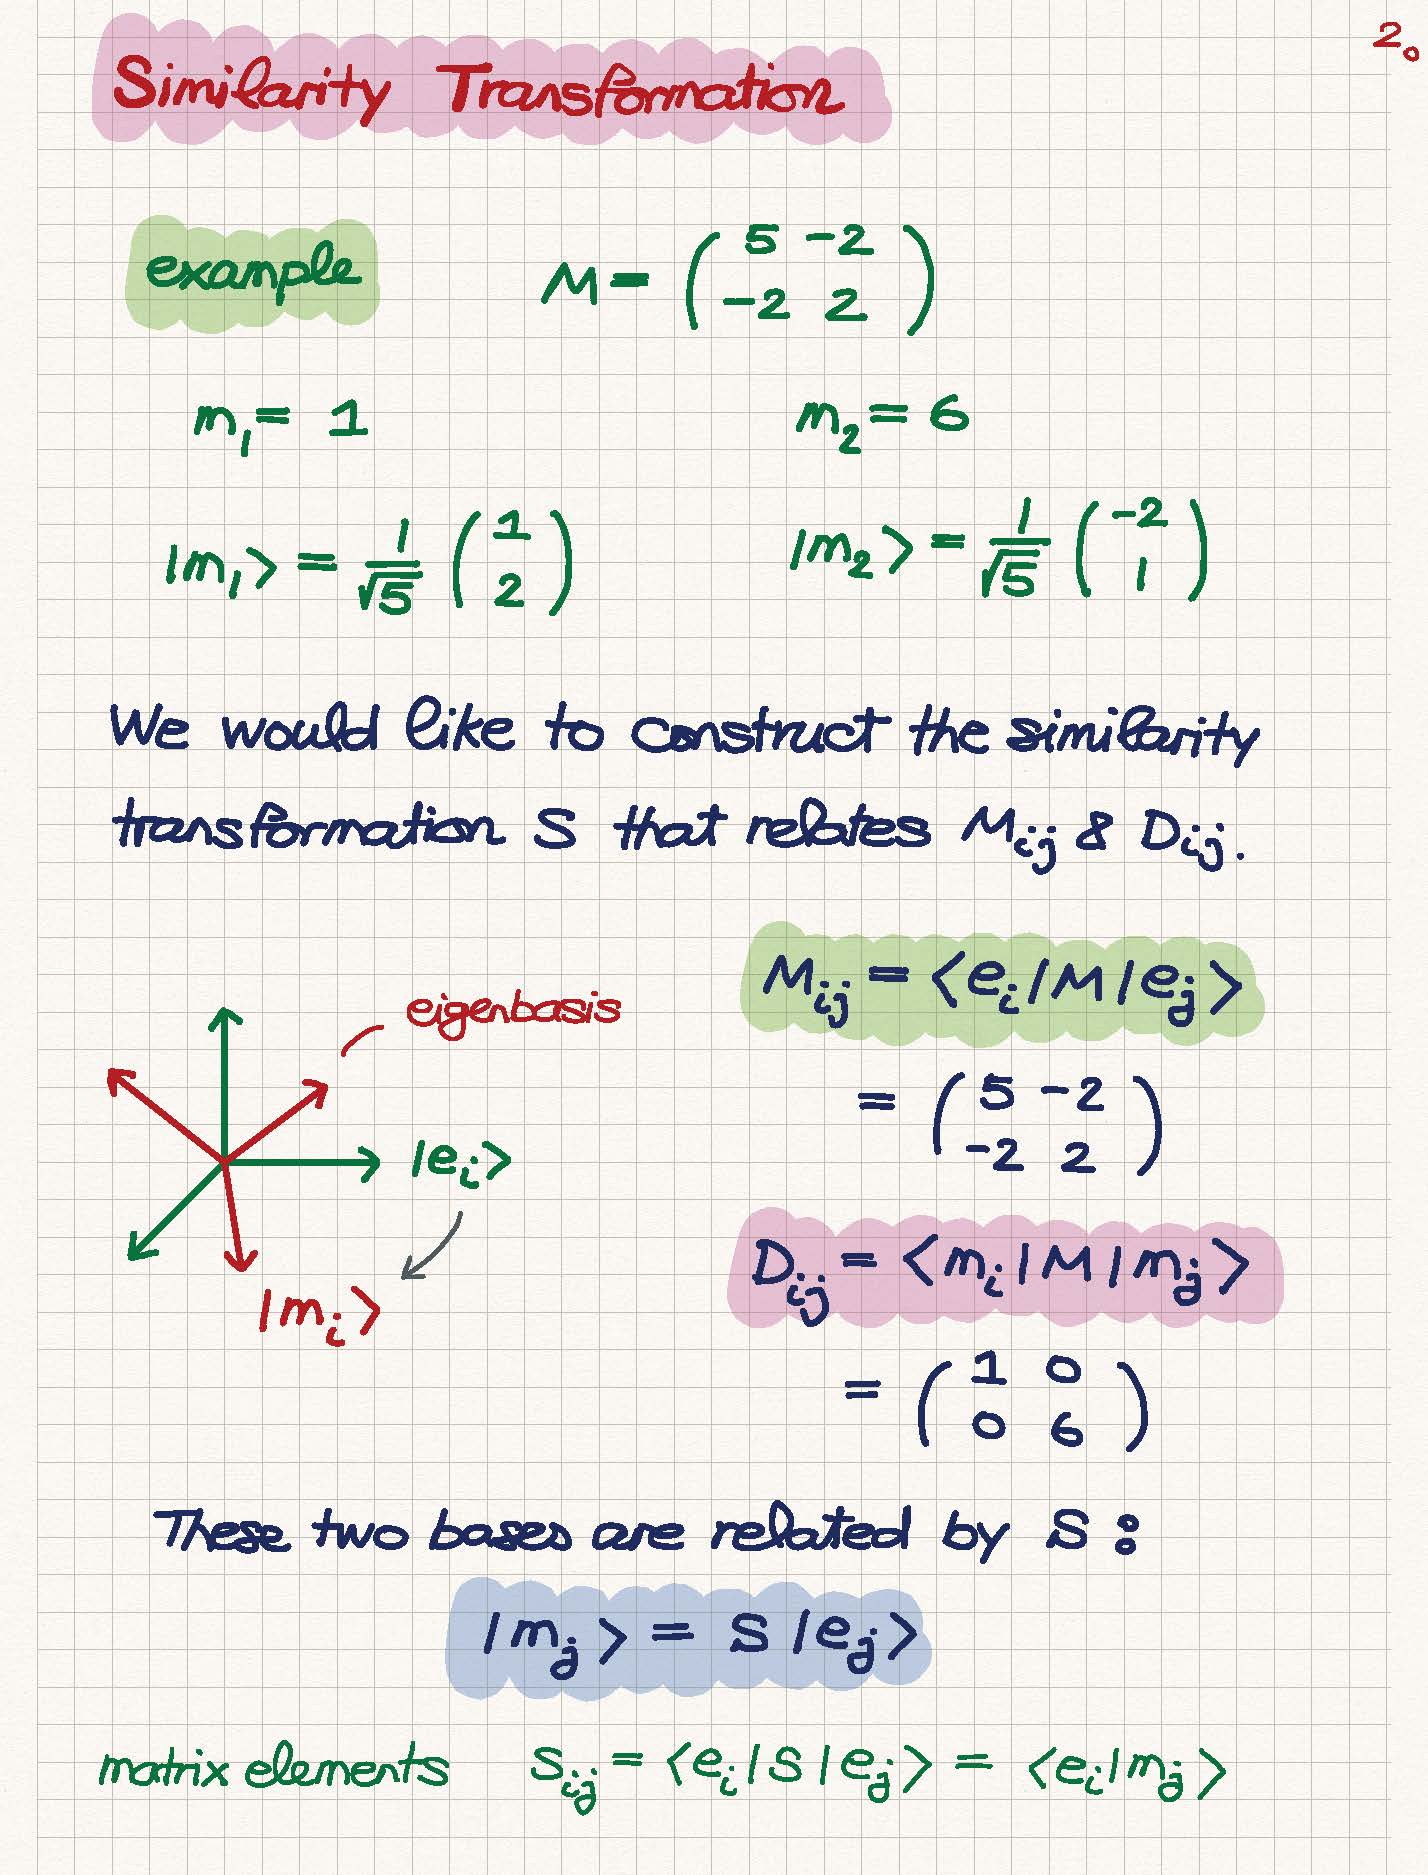 2.
Similarity Transformation
example M = ( 5 -2
-2 2 )
m₁ = 1 m₂ = 6
|m₁> = 1/√5 ( 1
2 ) |m₂> = 1/√5 ( -2
1 )
We would like to construct the similarity
transformation S that relates Mij & Dij.
eigenbasis
|ei>
|mi>
Mij = <ei|M|ej>
= ( 5 -2
-2 2 )
Dij = <mi|M|mj>
= ( 1 0
0 6 )
These two bases are related by S :
|mj> = S |ej>
matrix elements Sij = <ei|S|ej> = <ei|mj>